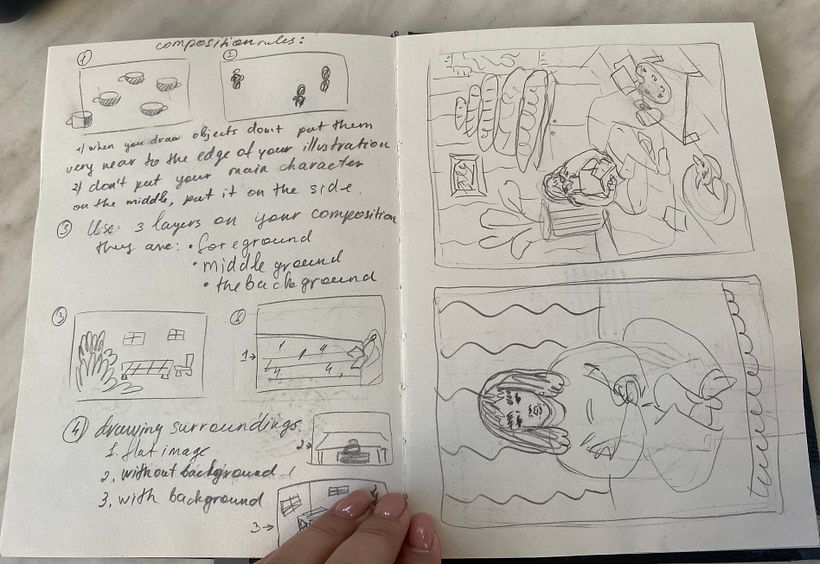 composition rules:
1
2
1) when you draw objects don't put them
very near to the edge of your illustration
2) don't put your main character
on the middle, put it on the side.
3 Use 3 layers on your composition
they are: • foreground
• middle ground
• the background
3
1→
4 drawing surroundings
1. flat image
2. without background
3. with background
2→
3→